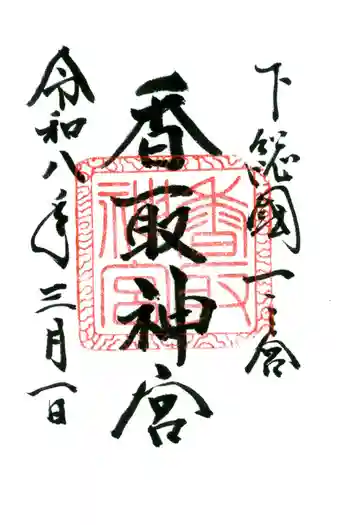 下総國一之宮
香取神宮
令和八年三月一日
香取神宮